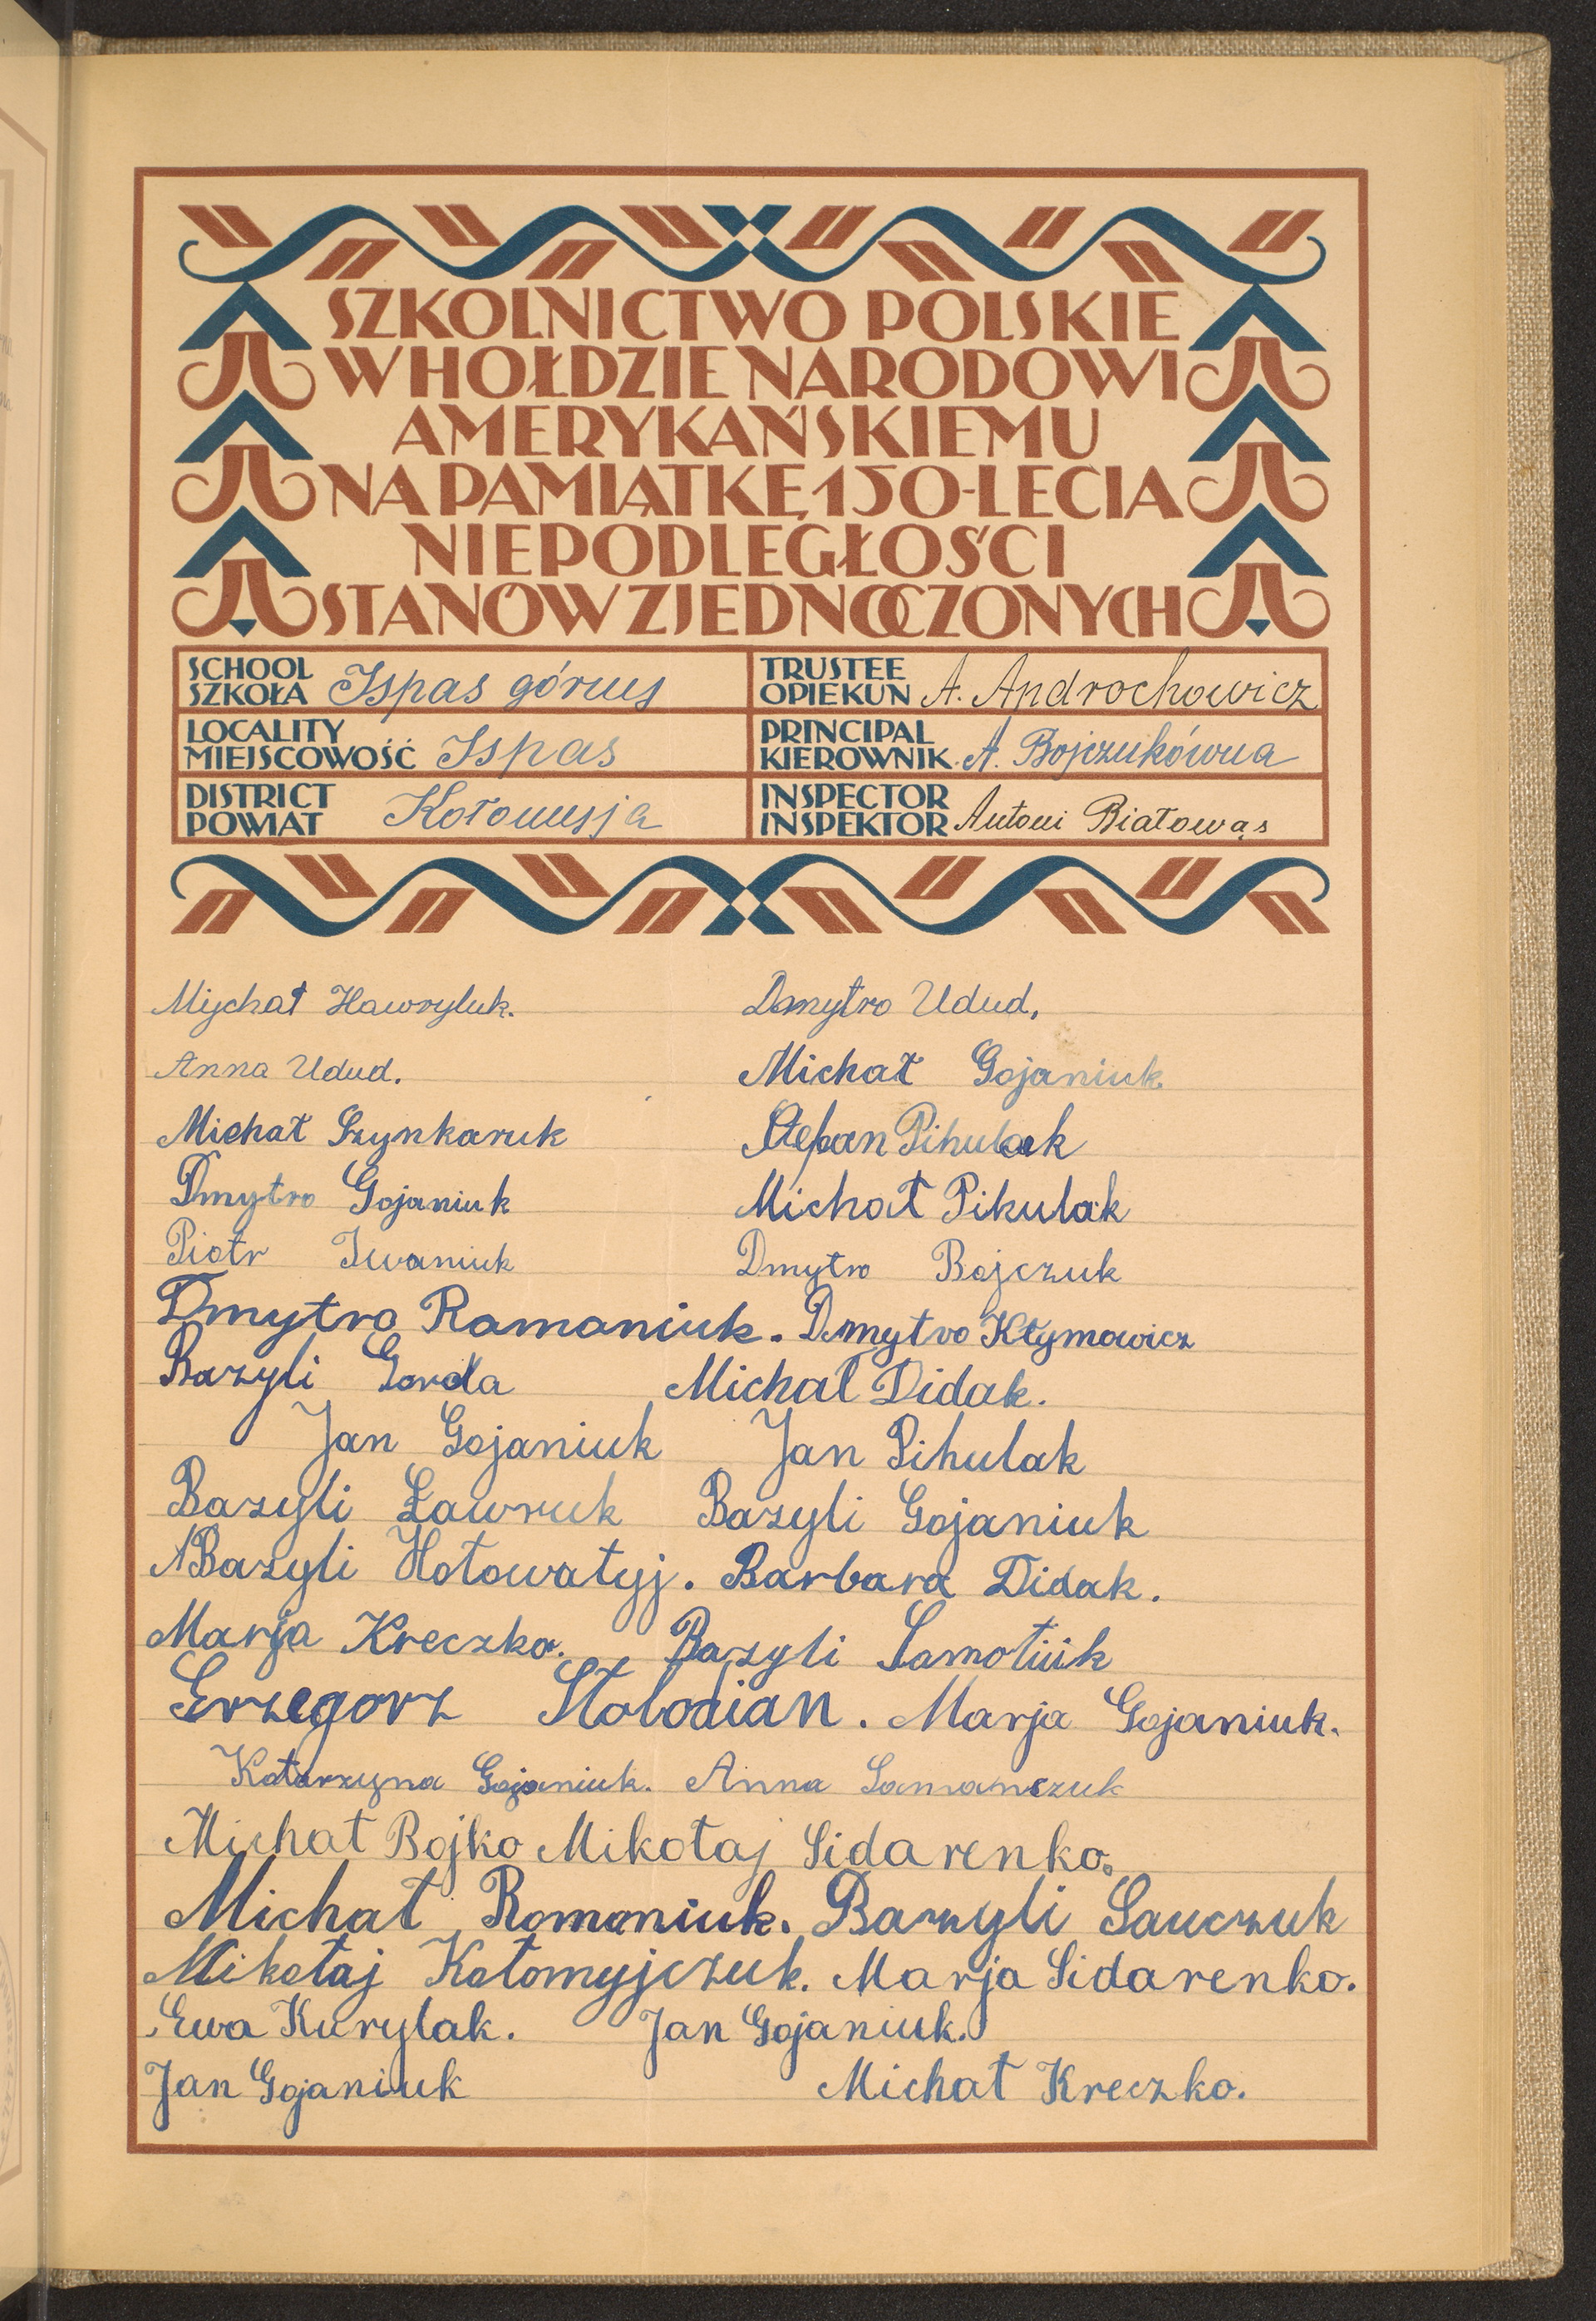 SZKOLNICTWO POLSKIE
W HOŁDZIE NARODOWI
AMERYKAŃSKIEMU
NA PAMIĄTKĘ 150-LECIA
NIEPODLEGŁOŚCI
STANÓW ZJEDNOCZONYCH
SCHOOL
SZKOŁA Ispas górny
TRUSTEE
OPIEKUN A. Androchowicz
LOCALITY
MIEJSCOWOŚĆ Ispas
PRINCIPAL
KIEROWNIK A. Bojczukówna
DISTRICT
POWIAT Kołomyja
INSPECTOR
INSPEKTOR Antoni Białowąs
Mychał Hawryluk. Dmytro Udud.
Anna Udud. Michał Gojaniuk.
Michał Szynkaruk Stefan Pihulak
Dmytro Gojaniuk Michał Pihulak
Piotr Iwaniuk Dmytro Bojczuk
Dmytro Romaniuk. Dmytro Kłymowicz
Bazyli Gorda Michał Didak.
Jan Gojaniuk Jan Pihulak
Bazyli Ławruk Bazyli Gojaniuk
Bazyli Hołowatyj. Barbara Didak.
Marja Kreczko. Bazyli Samotiuk
Grzegorz Słobodian. Marja Gojaniuk.
Katarzyna Gojaniuk. Anna Samanczuk
Michał Bojko Mikołaj Sidarenko.
Michał Romaniuk. Bazyli Sauczuk
Mikołaj Kołomyjczuk. Marja Sidarenko.
Ewa Kurylak. Jan Gojaniuk.
Jan Gojaniuk Michał Kreczko.